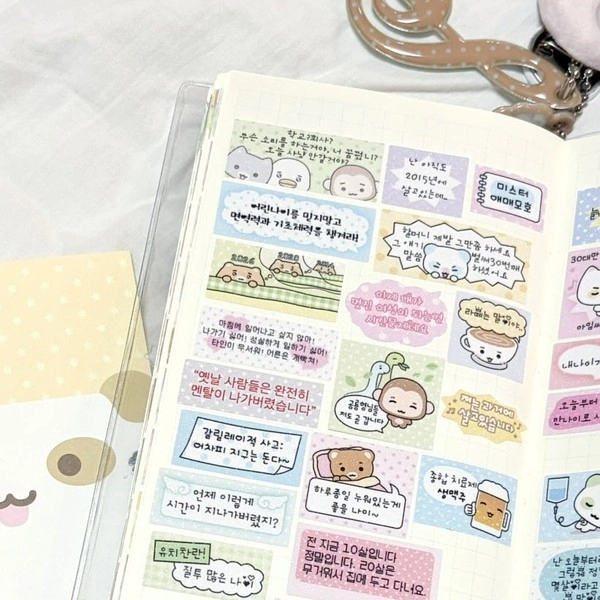 학교?회사?
무슨 소리를 하는거야, 너 꿈꿨니?
오늘 사냥 안갈거야?
난 아직도
2015년에
살고있는데..
미스터
애매모호
어린나이를 믿지말고
면역력과 기초체력을 챙겨라!
할머니 제발 그만좀 하세요
그 얘기 벌써 30번째
말씀 하셨어요
2026
2020
2014
이제 내가
멋진 여성이 되는건
시간문제네요
라떼는 말이야..
아침에 일어나고 싶지 않아!
나가기 싫어! 성실하게 일하기 싫어!
타인이 무서워! 어른은 개빡쳐!
"옛날 사람들은 완전히
멘탈이 나가버렸습니다"
저도 곧 갑니다
저는 과거에
살고있습니다
갈릴레이적 사고:
어차피 지구는 돈다~
하루종일 누워있는게
좋을 나이~
종합 치료제
생맥주
언제 이렇게
시간이 지나가버렸지?
유치찬란!
질투 많은 나
전 지금 10살입니다
정말입니다. 20살은
무거워서 집에 두고 다녀요
30대만
내나이가
오늘부터
만나이로
난 오늘부터